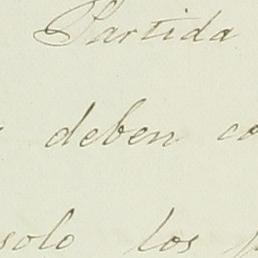 Partida
deben co
solo los